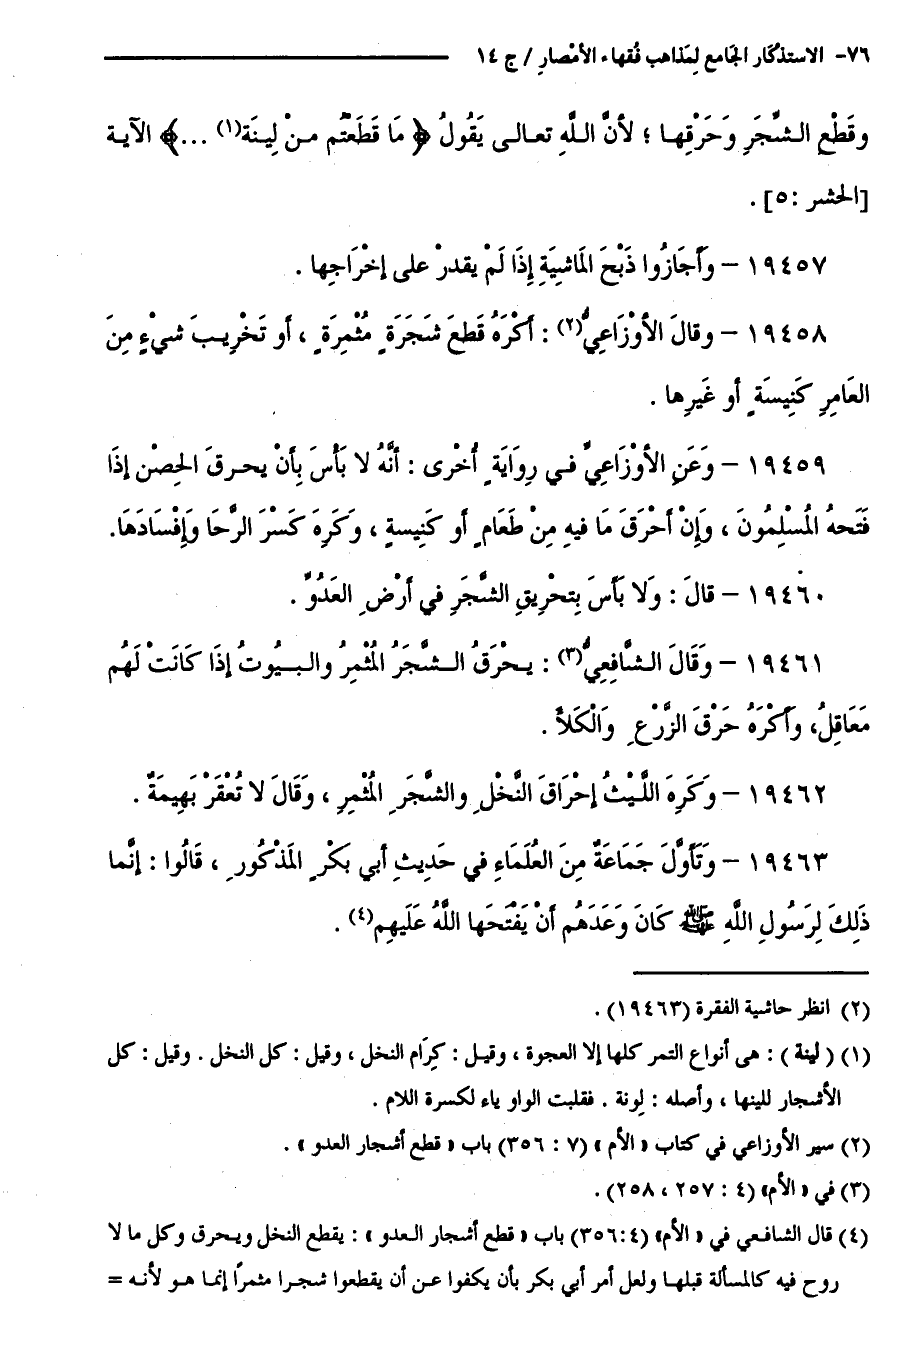 ٧٦- الاستذكار الجَامع لِمَذاهب فُقهاء الأمْصارِ / ج ١٤
وقَطْعِ الشَّجَرِ وَحَرْقِها ؛ لأنَّ اللَّهِ تعالى يَقُولُ ﴿ مَا قَطَعْتُم منْ لِينَة(١) ...﴾ الآية
[الحشر :٥] .
١٩٤٥٧ – وَأَجَازُوا ذَبْحَ المَاشِيَةِ إِذَا لَمْ يقدرْ على إخْرَاجِها .
١٩٤٥٨ – وقالَ الأوْزَاعِيُّ(٢) : أكْرَهُ قَطعَ شَجَرَةٍ مُثْمِرَةٍ ، أو تَخْرِيبَ شيْءٍ مِنَ
العَامرِ كَنِيسَةٍ أو غَيرِها .
١٩٤٥٩ – وَعَنِ الأوْزَاعِيِّ في رِوَايَةٍ أُخْرى : أنَّهُ لا بَأسَ بِأنْ يحرقَ الحِصْن إذَا
فَتَحهُ المُسْلِمُونَ ، وَإِنْ أحْرَقَ مَا فيهِ مِنْ طَعَامٍ أو كَنِيسةٍ ، وكَرِهَ كَسْرَ الرَّحَا وَإِفْسَادَهَا.
١٩٤٦٠ – قالَ : وَلا بَأسَ بِتحْرِيقِ الشَّجَرِ في أرْضِ العَدُوِّ .
١٩٤٦١ – وَقَالَ الشَّافِعِيُّ(٣) : يحْرَقُ الشَّجَرُ المُثْمِرُ والبيُوتُ إذَا كَانَتْ لَهُم
مَعَاقِلُ، وأكْرَهُ حَرْقَ الزَّرْعِ وَالْكَلأ .
١٩٤٦٢ – وَكَرِهَ اللَّيْثُ إحْرَاقَ النَّخْلِ والشَّجَرِ المُثْمرِ ، وَقَالَ لا تُعْقَرْ بَهِيمَةٌ .
١٩٤٦٣ – وَتَأوَّلَ جَمَاعَةٌ مِنَ العُلَمَاءِ في حَدِيثِ أبي بَكْرٍ المَذْكُورِ ، قَالُوا : إنَّما
ذَلِكَ لِرَسُولِ اللَّهِ ﷺ كَانَ وَعَدَهُم أنْ يَفْتَحَها اللَّهُ عَلَيهِم(٤) .
(٢) انظر حاشية الفقرة (١٩٤٦٣) .
(١) ( لينة ) : هى أنواع التمر كلها إلا العجوة ، وقيل : كِرَام النخل ، وقيل : كل النخل . وقيل : كل
الأشجار للينها ، وأصله : لِونة . فقلبت الواو ياء لكسرة اللام .
(٢) سير الأوزاعي في كتاب « الأم » (٧ : ٣٥٦) باب « قطع أشجار العدو » .
(٣) في « الأم» (٤ : ٢٥٧ ، ٢٥٨) .
(٤) قال الشافعي في « الأم» (٣٥٦:٤) باب « قطع أشجار العدو » : يقطع النخل ويحرق وكل ما لا
روح فيه كالمسألة قبلها ولعل أمر أبي بكر بأن يكفوا عن أن يقطعوا شجرا مثمرًا إنما هو لأنه =